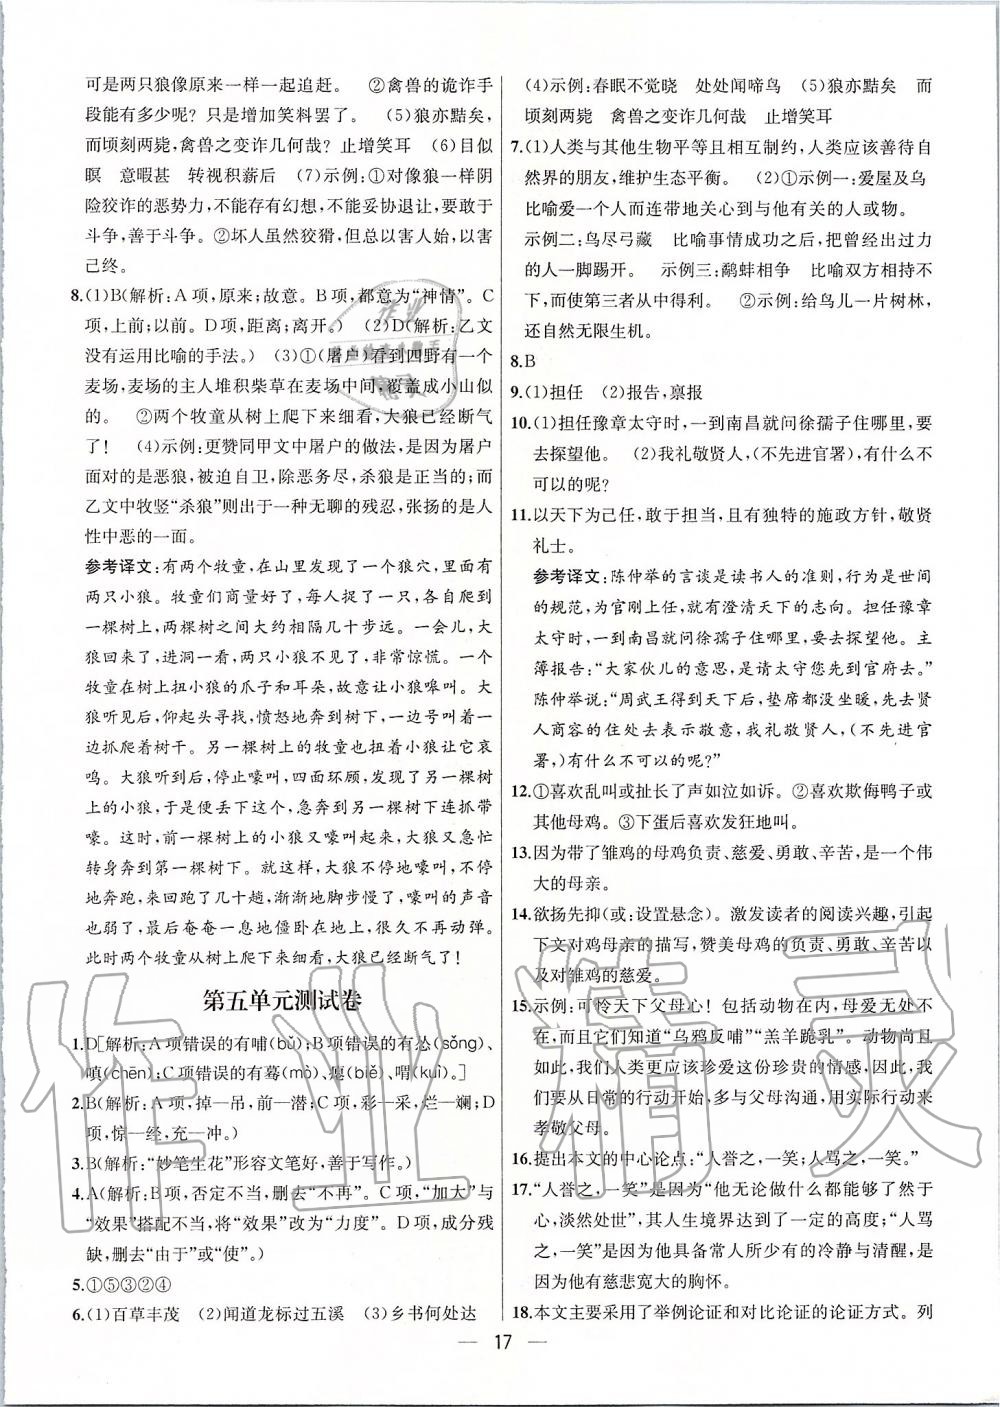 可是两只狼像原来一样一起追赶。　②禽兽的诡诈手
段能有多少呢？只是增加笑料罢了。　(5)狼亦黠矣，
而顷刻两毙，禽兽之变诈几何哉？止增笑耳　(6)目似
瞑　意暇甚　转视积薪后　(7)示例：①对像狼一样阴
险狡诈的恶势力，不能存有幻想，不能妥协退让，要敢于
斗争，善于斗争。②坏人虽然狡猾，但总以害人始，以害
己终。
8.(1)B(解析：A项，原来；故意。B项，都意为“神情”。C
项，上前；以前。D项，距离；离开。)　(2)D(解析：乙文
没有运用比喻的手法。)　(3)①(屠户)看到四野有一个
麦场，麦场的主人堆积柴草在麦场中间，覆盖成小山似
的。　②两个牧童从树上爬下来细看，大狼已经断气
了！　(4)示例：更赞同甲文中屠户的做法，是因为屠户
面对的是恶狼，被迫自卫，除恶务尽，杀狼是正当的；而
乙文中牧竖“杀狼”则出于一种无聊的残忍，张扬的是人
性中恶的一面。
参考译文：有两个牧童，在山里发现了一个狼穴，里面有
两只小狼。牧童们商量好了，每人捉了一只，各自爬到
一棵树上，两棵树之间大约相隔几十步远。一会儿，大
狼回来了，进洞一看，两只小狼不见了，非常惊慌。一个
牧童在树上扭小狼的爪子和耳朵，故意让小狼嗥叫。大
狼听见后，仰起头寻找，愤怒地奔到树下，一边号叫着一
边抓爬着树干。另一棵树上的牧童也扭着小狼让它哀
鸣。大狼听到后，停止嚎叫，四面环顾，发现了另一棵树
上的小狼，于是便丢下这个，急奔到另一棵树下连抓带
嚎。这时，前一棵树上的小狼又嚎叫起来，大狼又急忙
转身奔到第一棵树下。就这样，大狼不停地嚎叫，不停
地奔跑，来回跑了几十趟，渐渐地脚步慢了，嚎叫的声音
也弱了，最后奄奄一息地僵卧在地上，很久不再动弹。
此时两个牧童从树上爬下来细看，大狼已经断气了！
第五单元测试卷
1.D[解析：A项错误的有哺(bǔ)；B项错误的有怂(sǒng)、
嗔(chēn)；C项错误的有蓦(mò)、瘪(biě)、喟(kuì)。]
2.B(解析：A项，掉—吊，前—潜；C项，彩—采，烂—斓；D
项，惊—经，充—冲。)
3.B(解析：“妙笔生花”形容文笔好，善于写作。)
4.A(解析：B项，否定不当，删去“不再”。C项，“加大”与
“效果”搭配不当，将“效果”改为“力度”。D项，成分残
缺，删去“由于”或“使”。)
5.①⑤③②④
6.(1)百草丰茂　(2)闻道龙标过五溪　(3)乡书何处达
(4)示例：春眠不觉晓　处处闻啼鸟　(5)狼亦黠矣　而
顷刻两毙　禽兽之变诈几何哉　止增笑耳
7.(1)人类与其他生物平等且相互制约，人类应该善待自
然界的朋友，维护生态平衡。　(2)①示例一：爱屋及乌
比喻爱一个人而连带地关心到与他有关的人或物。
示例二：鸟尽弓藏　比喻事情成功之后，把曾经出过力
的人一脚踢开。　示例三：鹬蚌相争　比喻双方相持不
下，而使第三者从中得利。　②示例：给鸟儿一片树林，
还自然无限生机。
8.B
9.(1)担任　(2)报告，禀报
10.(1)担任豫章太守时，一到南昌就问徐孺子住哪里，要
去探望他。　(2)我礼敬贤人，(不先进官署)，有什么不
可以的呢？
11.以天下为己任，敢于担当，且有独特的施政方针，敬贤
礼士。
参考译文：陈仲举的言谈是读书人的准则，行为是世间
的规范，为官刚上任，就有澄清天下的志向。担任豫章
太守时，一到南昌就问徐孺子住哪里，要去探望他。主
簿报告：“大家伙儿的意思，是请太守您先到官府去。”
陈仲举说：“周武王得到天下后，垫席都没坐暖，先去贤
人商容的住处去表示敬意，我礼敬贤人，(不先进官
署，)有什么不可以的呢？”
12.①喜欢乱叫或扯长了声如泣如诉。②喜欢欺侮鸭子或
其他母鸡。③下蛋后喜欢发狂地叫。
13.因为带了雏鸡的母鸡负责、慈爱、勇敢、辛苦，是一个伟
大的母亲。
14.欲扬先抑(或：设置悬念)。激发读者的阅读兴趣，引起
下文对鸡母亲的描写，赞美母鸡的负责、勇敢、辛苦以
及对雏鸡的慈爱。
15.示例：可怜天下父母心！包括动物在内，母爱无处不
在，而且它们知道“乌鸦反哺”“羔羊跪乳”。动物尚且
如此，我们人类更应该珍爱这份珍贵的情感。我们
要从日常的行动开始，多与父母沟通，用实际行动来
孝敬父母。
16.提出本文的中心论点：“人誉之，一笑；人骂之，一笑。”
17.“人誉之，一笑”是因为“他无论做什么都能够了然于
心，淡然处世”，其人生境界达到了一定的高度；“人骂
之，一笑”是因为他具备常人所少有的冷静与清醒，是
因为他有慈悲宽大的胸怀。
18.本文主要采用了举例论证和对比论证的论证方式。列
— 17 —
作业精灵